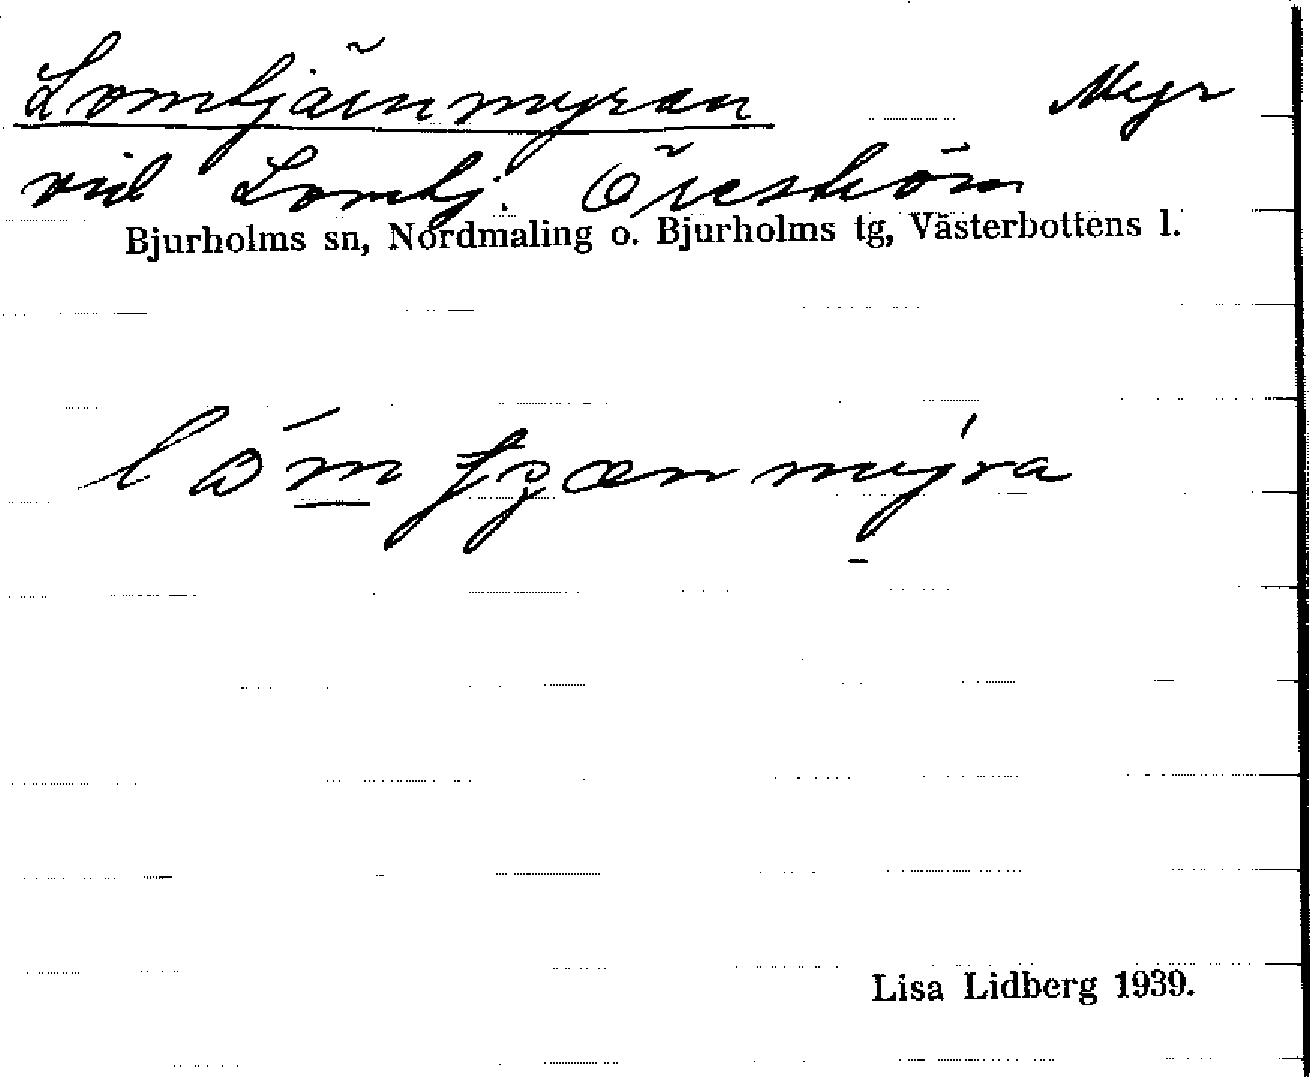 Lomtjärnmyran Myr
vid Lomtj. Öreström
Bjurholms sn, Nordmaling o. Bjurholms tg, Västerbottens l.
Lisa Lidberg 1939.